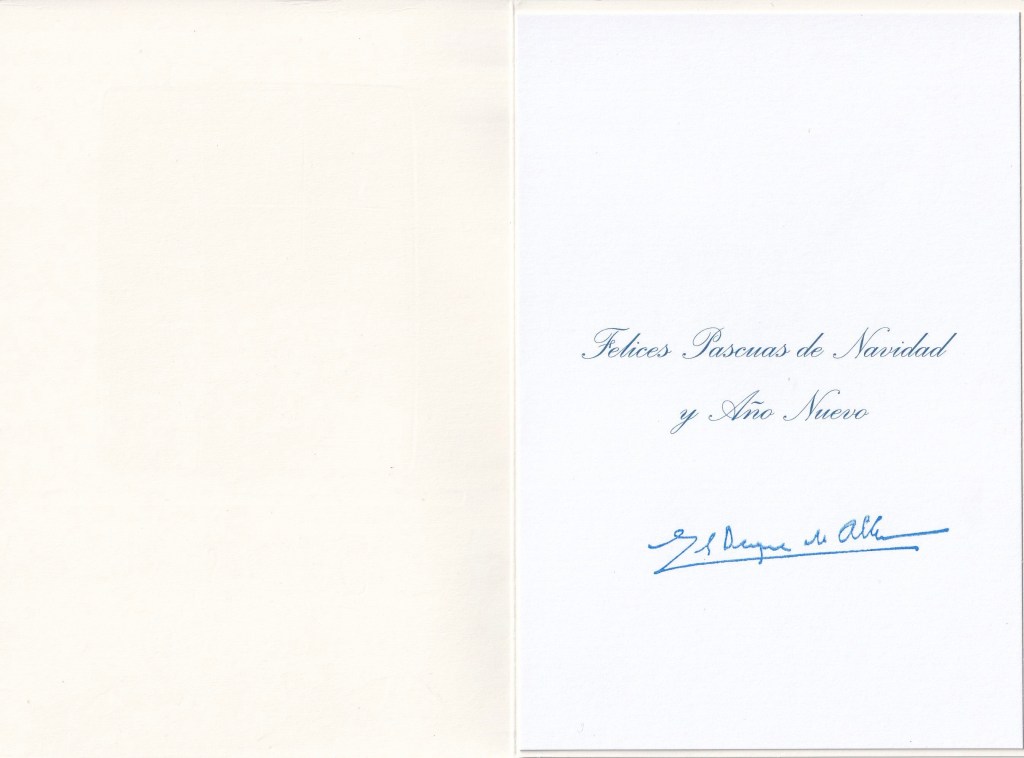 Felices Pascuas de Navidad
y Año Nuevo
El Duque de Alba